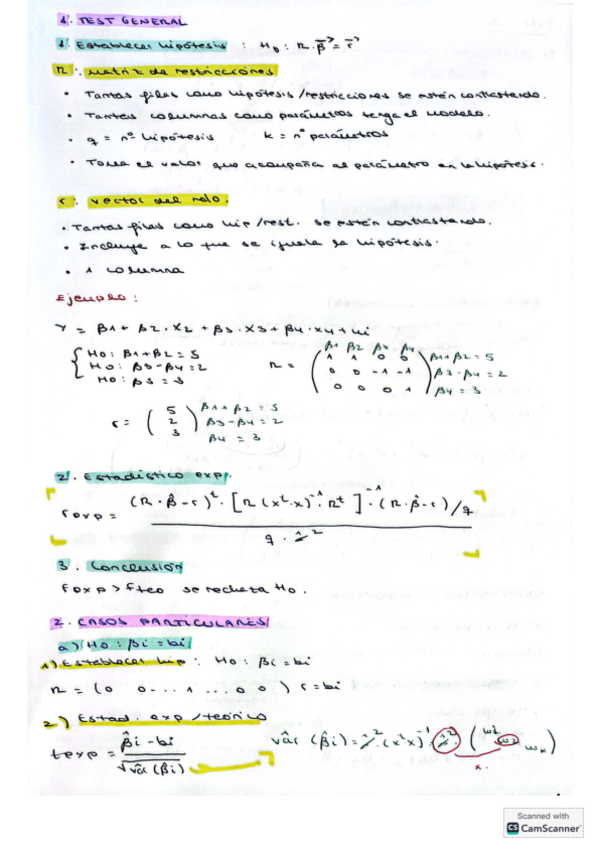 1. TEST GENERAL
1. Establecer hipótesis : H0 : R · β⃗ = r⃗
R : matriz de restricciones
• Tantas filas como hipótesis/restricciones se estén contrastando.
• Tantas columnas como parámetros tenga el modelo.
• q = nº hipótesis    k = nº parámetros
• Toma el valor que acompaña al parámetro en la hipótesis.
r : vector del
• Tantas filas como hip/rest. se estén contrastando.
• Incluye a lo que se iguala la hipótesis.
• 1 columna
Ejemplo :
Y = β1 + β2 · X2 + β3 · X3 + β4 · X4 + ui
β1 β2 β3 β4
H0 : β1 + β2 = 5    R = ( 1 1 0 0 ) β1 + β2 = 5
H0 : β3 - β4 = 2    0 0 -1 -1    β3 - β4 = 2
H0 : β3 = 3    0 0 0 1    β4 = 3
r = ( 5 ) β1 + β2 = 5
2    β3 - β4 = 2
3    β4 = 3
2. Estadístico exp.
Fexp = (R · β̂ - r)^t · [R (x^t · x)^-1 · R^t]^-1 · (R · β̂ - r) / q
q · ^2
3. Conclusión
Fexp > Fteo se rechaza H0.
2. CASOS PARTICULARES
a) H0 : βi = bi
1) Establecer hip : H0 : βi = bi
R = (0 0 ... 1 ... 0 0) r = bi
2) Estad. exp/teórico
texp = β̂i - bi / √vâr (β̂i)    vâr (β̂i) = ^2 · (x^t x)^-1 = ^2 · ( )
Scanned with
CS CamScanner